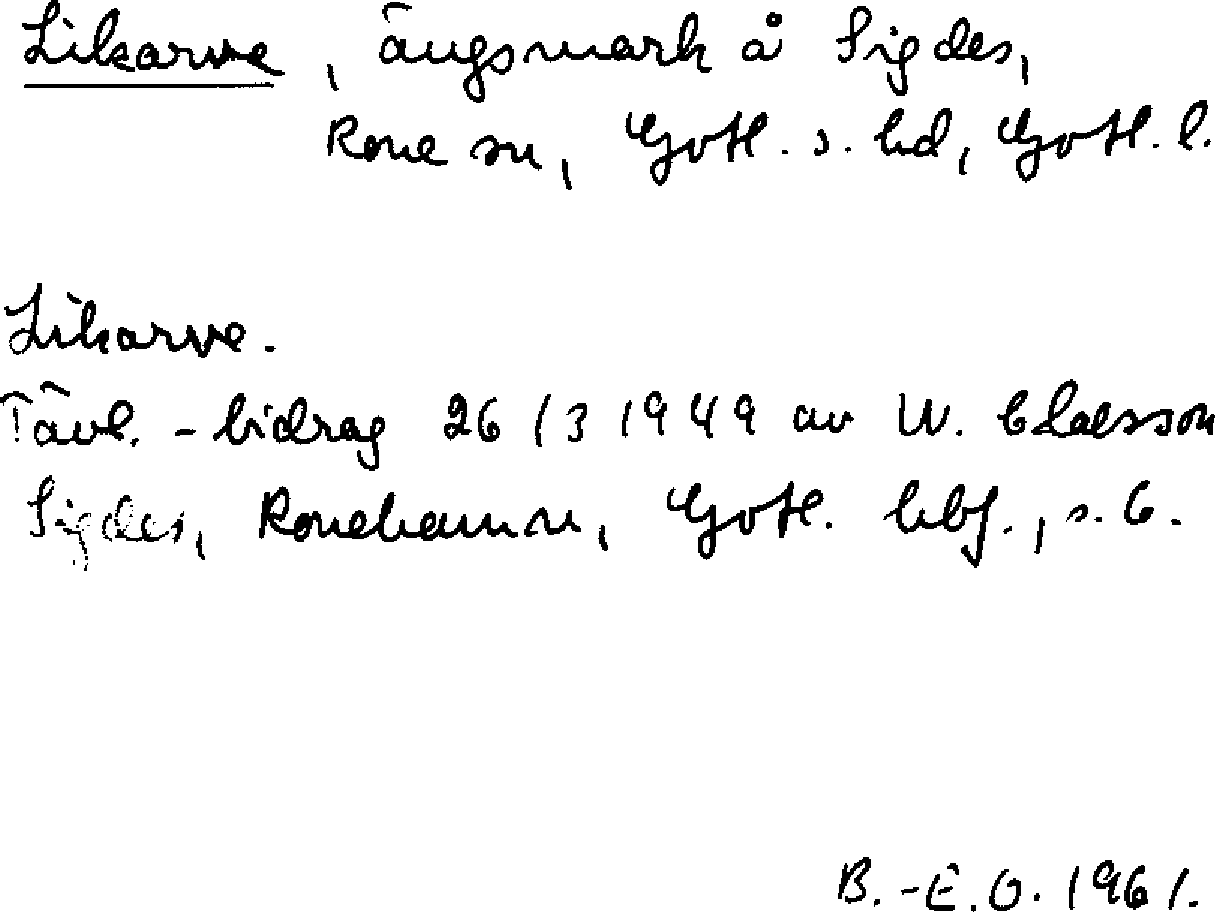 Likarve, ängsmark å Sigdes,
Rone sn, Gotl. s. hd, Gotl. l.
Likarve.
Tävl. - bidrag 26/3 1949 av W. Claesson
Sigdes, Ronehamn, Gotl. hbf., s. 6.
B.-E.O. 1961.